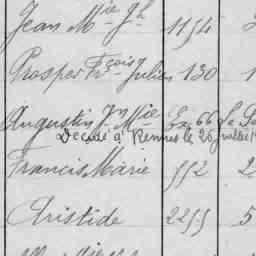 Jean Mie Jh 1154
Prosper Fçois Julien 130 1
Augustin Jn Mie Ex. 66
Décédé à Rennes le 26 juillet
Francis Marie 552 2
Aristide 2255 5